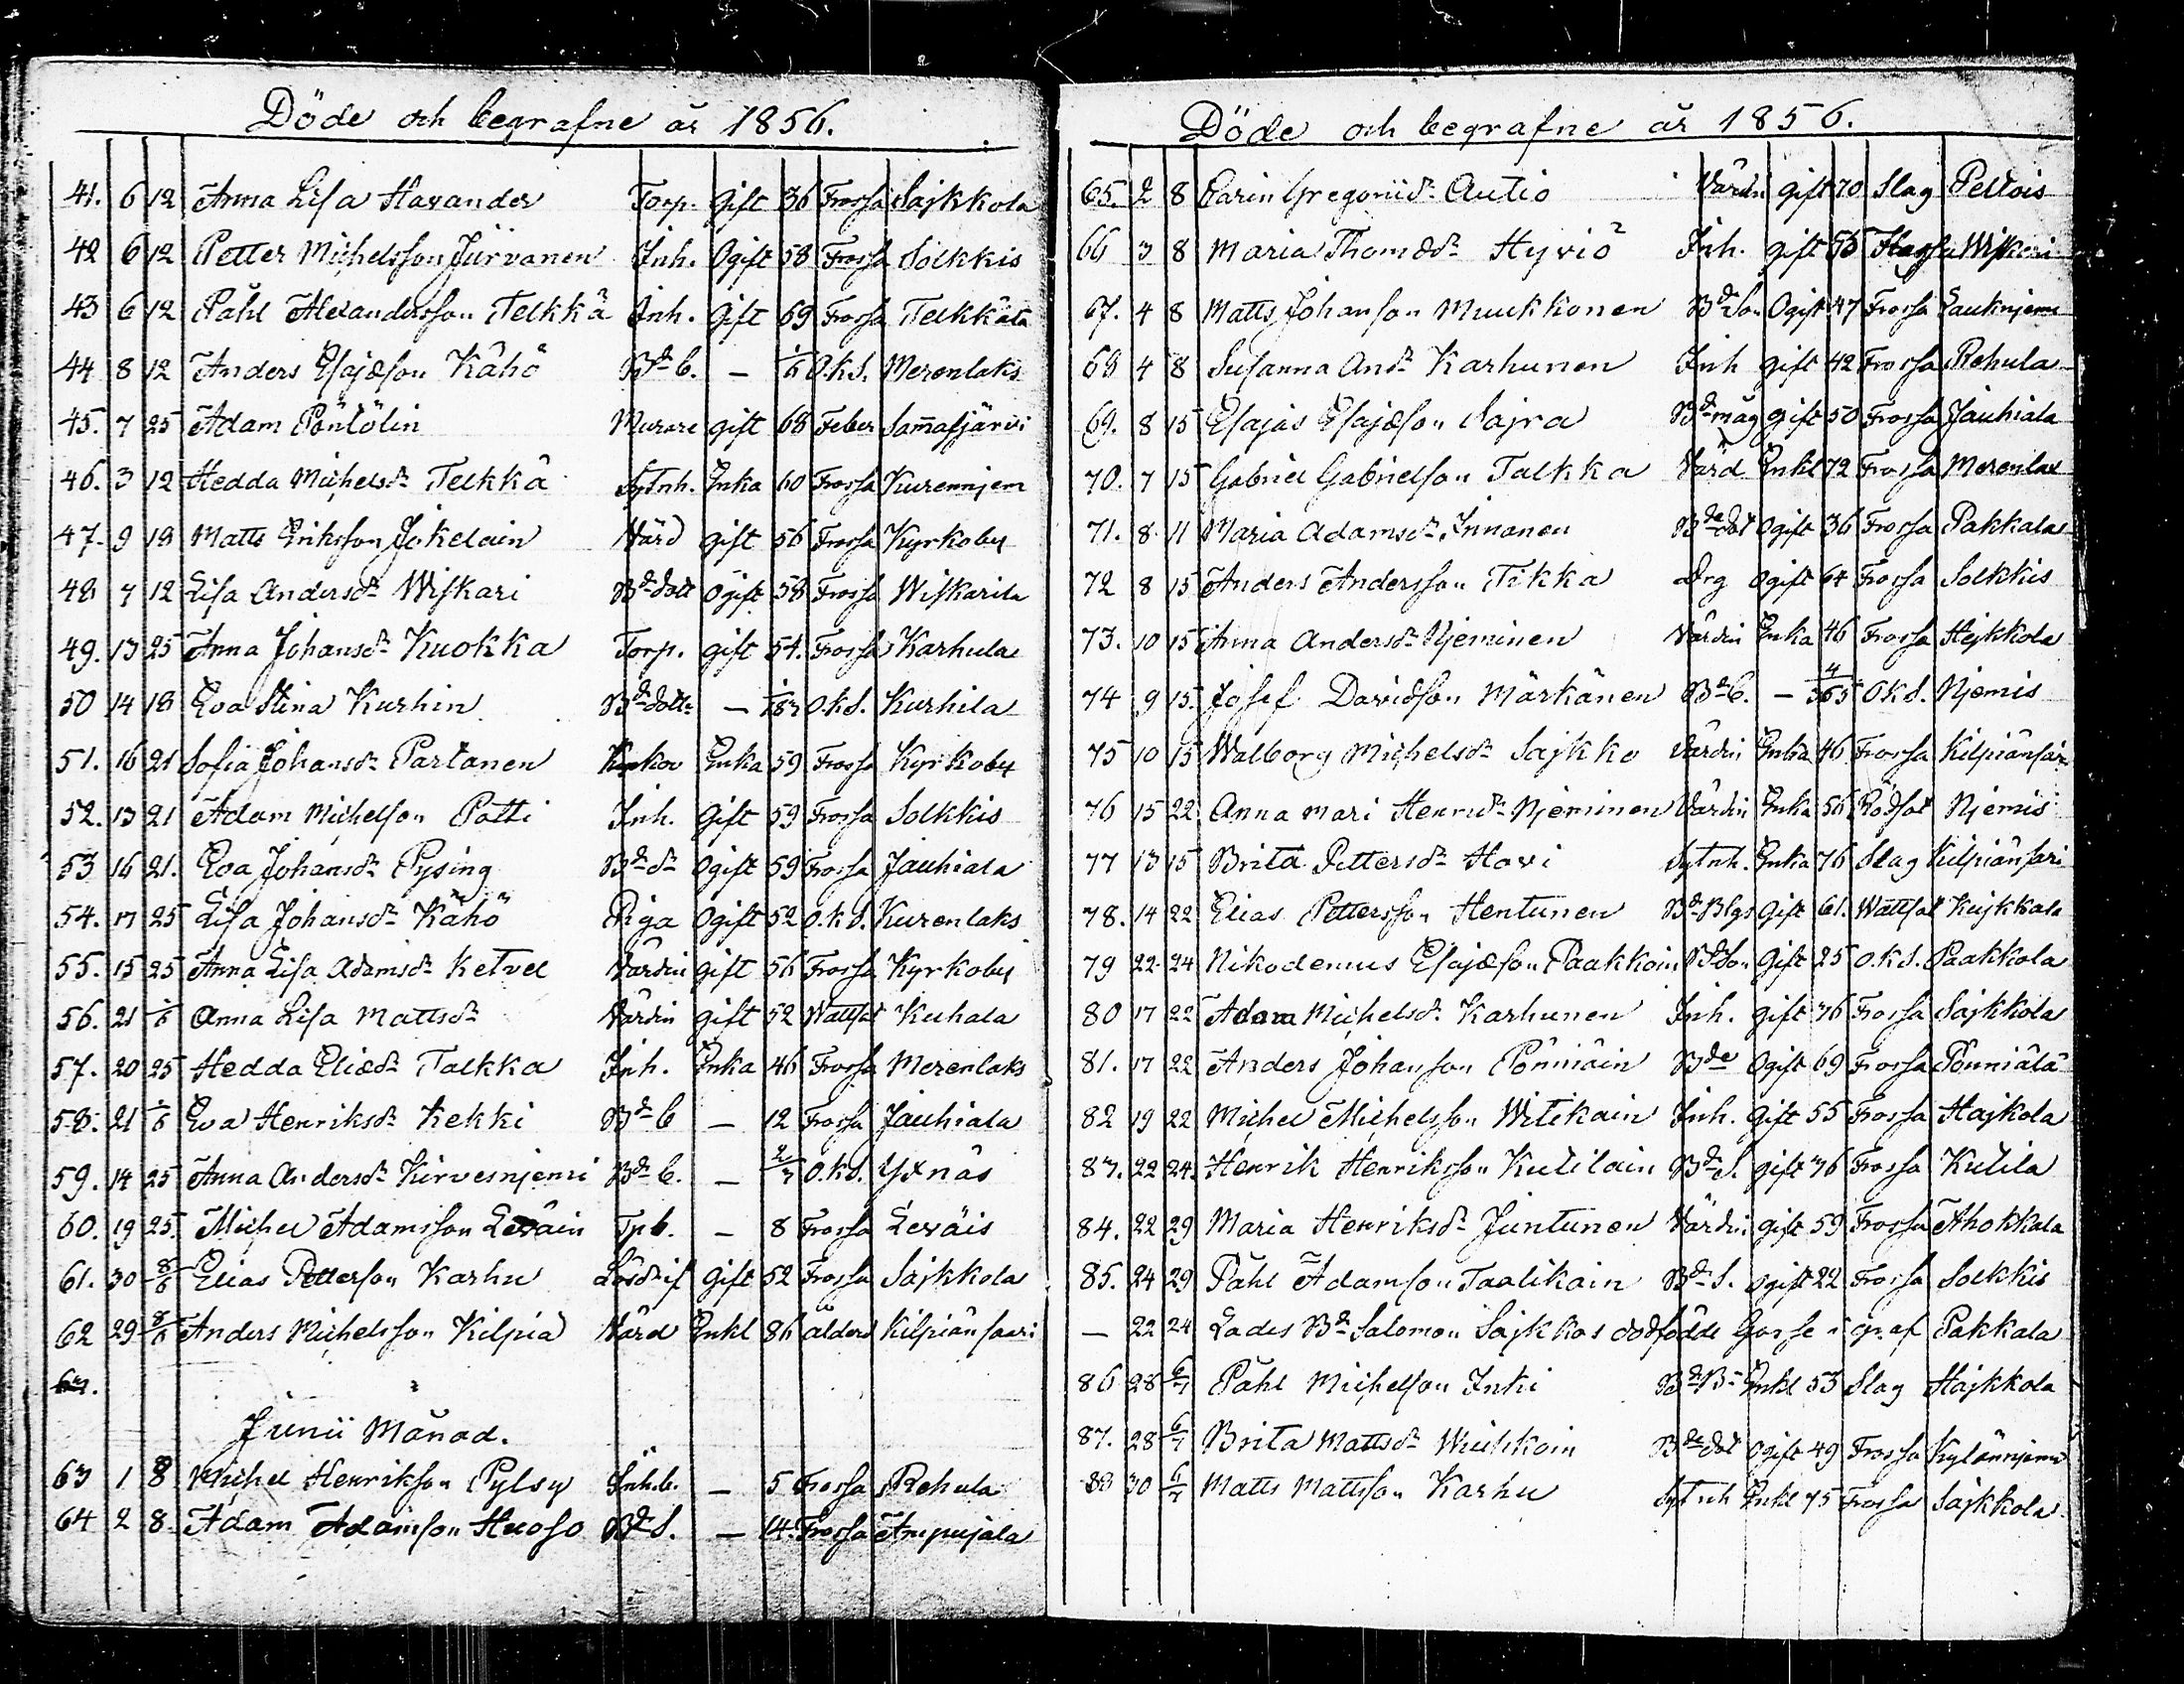 Döde och begrafne år 1856.
41. 6 12 Anna Lisa Havander Torp. Gift 36 Frossa Sajkkola
42 6 12 Petter Michelsson Jürvanen Inh. Ogift 58 Frossa Solkkis
43 6 12 Påhl Alexandersson Telkkä Inh. Gift 69 Frossa Telkkälä
44 8 12 Anders Esajæson Kähö Bde b. — O.k.S. Merenlaks
45. 7 25 Adam Pöntölin Murare gift 68 Feber
46. 3 12 Hedda Michelsdr Telkkä Sytnh. Enka 60 Frossa Kurennjem
47. 9 18 Matts Eriksson Jokelain Värd gift 56 Frossa Kyrkoby
48 7 12 Lisa Andersdr Wiskari Bde dott Ogift 58 Frossa Wiskarila
49. 13 25 Anna Johansdr Kuokka Torp. gift 54. Frossa Karhula
50 14 18 Eva Stina Kurhin Bde dottr — O.k.S. Kurhila
51. 16 21 Sofia Johansdr Partanen Enka 59 Frossa Kyrkoby
52. 13 21 Adam Michelson Potti Inh. Gift 59 Frossa Solkkis
53 16 21. Eva Johansdr Pysing Bde dr Ogift 59 Frossa Jauhiala
54. 17 25 Lisa Johansdr Kähö Piga Ogift 52 O.k.S. Kurenlaks
55. 15 25 Anna Lisa Adamsdr Ketvel Värdin gift 56 Frossa Kyrkoby
56. 21 1/6 Anna Lisa Mattsdr Värdin gift 52 Wattsot Kuhala
57. 20 25 Hedda Eliædr Talkka Inh. Enka 46 Frossa Merenlaks
58. 21 1/6 Eva Henriksdr Kekki Bde b — 12 Frossa Jauhiala
59. 14 25 Anna Andersdr Kirvesnjemi Bde b. — O.k.S. Yxnäs
60. 19 25. Michel Adamsson Leväin Tp b. — 8 Frossa Leväis
61. 30 8/6 Elias Petterson Karhu Lösdrif gift 52 Frossa Sajkkola
62 29 8/6 Anders Michelsson Kilpiä Värd Enkl 86 ålderd Kilpiänsaari
63.
Junii Månad.
63 1 8 Michel Henrikson Pylsy Inh.b. — 5 Frossa Rehula
64 2 8. Adam Adamson Huoso Bde S. — 14. Frossa Ampujala
Döde och begrafne år 1856.
65. 2 8 Carin Gregoriidr Autio Värdin gift 70 Slag Peltois
66 3 8 Maria Thomædr Hyviö Inh. gift 55 Wiskari
67. 4 8 Matts Johanson Muukkonen Bde Son Ogift 47 Frossa Lauknjemi
68 4 8 Susanna Andr Karhunen Inh gift 42 Frossa Rehula
69. 8 15 Esajas Esajæson Sajra Bde måg gift 50 Frossa Jauhiala
70. 7 15 Gabriel Gabrielson Talkka Värd Enkl 72 Frossa Merenlax
71. 8. 11 Maria Adamsdr Innanen Bde dot Ogift 36 Frossa Pakkala
72 8 15 Anders Andersson Tikka Drg Ogift 64 Frossa Solkkis
73. 10 15 Anna Andersdr Njeminen Värdin Enka 46 Frossa Hejkkola
74 9 15. Josef Davidson Märkänen Bde b. — 4/365 O.k.S. Njemis
75 10 15 Walborg Michelsdr Sajkko Värdin Enka 46 Frossa Kilpiänsari
76 15 22 Anna Mari Henrdr Njeminen Värdin Enka 56 Rödsot Njemis
77 13 15 Brita Pettersdr Hovi Sytnh. Enka 76 Slag Kilpiänsari
78. 14 22 Elias Pettersson Hentunen Bde Blgs Gift 61. Wattsot Kujkkala
79 22 24 Nikodemus Esajæson Paakkoin Bde Son Gift 25 O.k.S. Paakkola
80 17 22 Adam Michelsdr. Karhunen Inh. gift 76 Frossa Sajkkola
81. 17 22 Anders Johanson Pönniäin Bde Ogift 69 Frossa Pönniälä
82 19 22 Michel Michelsson Witikain Inh. gift 55 Frossa Hajkola
83. 22 24. Henrik Henriksson Kutilain Bde S. gift 76 Frossa Kutila
84. 22 29 Maria Henriksdr Juntunen Värdin gift 59 Frossa Ahokkala
85. 24 29 Påhl Adamson Taalikain Bde S. Ogift 22 Frossa Solkkis
— 22 24 Lades Bde Salomon Sajkkos dödfödde Gosse i graf Pakkala
86 28 6/7 Påhl Michelson Inki Bde Br Enkl 53 Slag Hajkkola
87. 28 6/7 Brita Mattsdr Wuikkoin Bde dot Ogift 49 Frossa Kylännjemi
88 30 6/7 Matts Mattson Karhu Sytnh Enkl 75 Frossa Sajkkola.